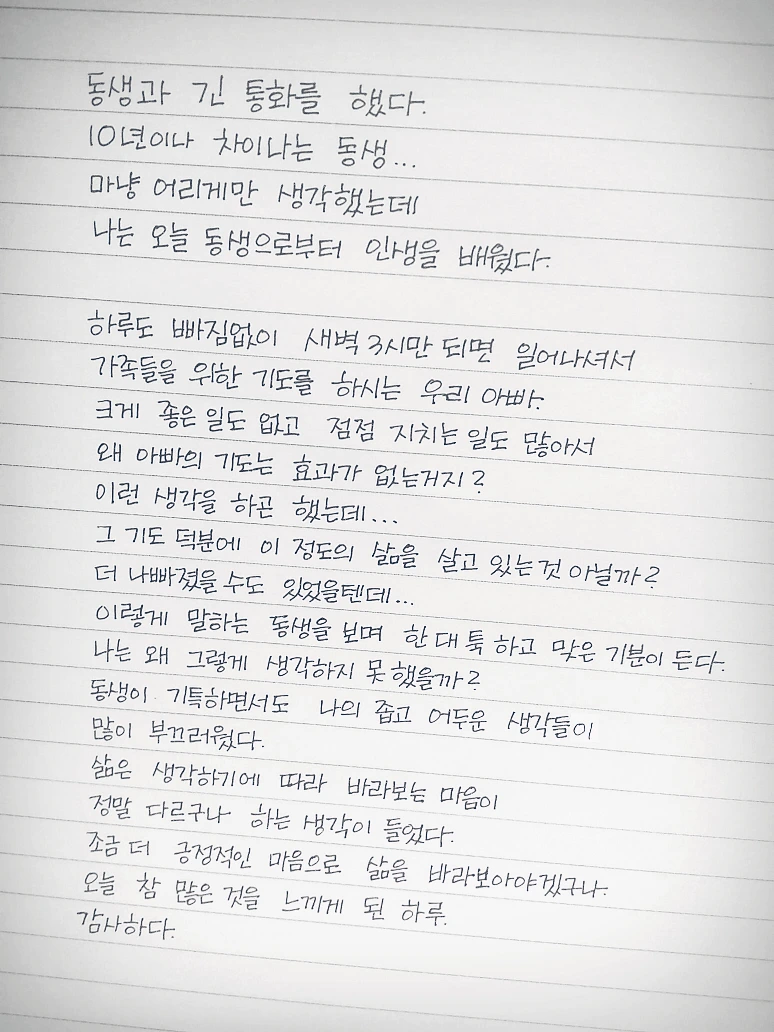 동생과 긴 통화를 했다.
10년이나 차이나는 동생...
마냥 어리게만 생각했는데
나는 오늘 동생으로부터 인생을 배웠다.
하루도 빠짐없이 새벽 3시만 되면 일어나셔서
가족들을 위한 기도를 하시는 우리 아빠.
크게 좋은 일도 없고 점점 지치는 일도 많아서
왜 아빠의 기도는 효과가 없는거지?
이런 생각을 하곤 했는데...
그 기도 덕분에 이 정도의 삶을 살고 있는것 아닐까?
더 나빠졌을 수도 있었을텐데...
이렇게 말하는 동생을 보며 한 대 툭 하고 맞은 기분이 든다.
나는 왜 그렇게 생각하지 못했을까?
동생이 기특하면서도 나의 좁고 어두운 생각들이
많이 부끄러웠다.
삶은 생각하기에 따라 바라보는 마음이
정말 다르구나 하는 생각이 들었다.
조금 더 긍정적인 마음으로 삶을 바라보아야겠구나.
오늘 참 많은 것을 느끼게 된 하루.
감사하다.